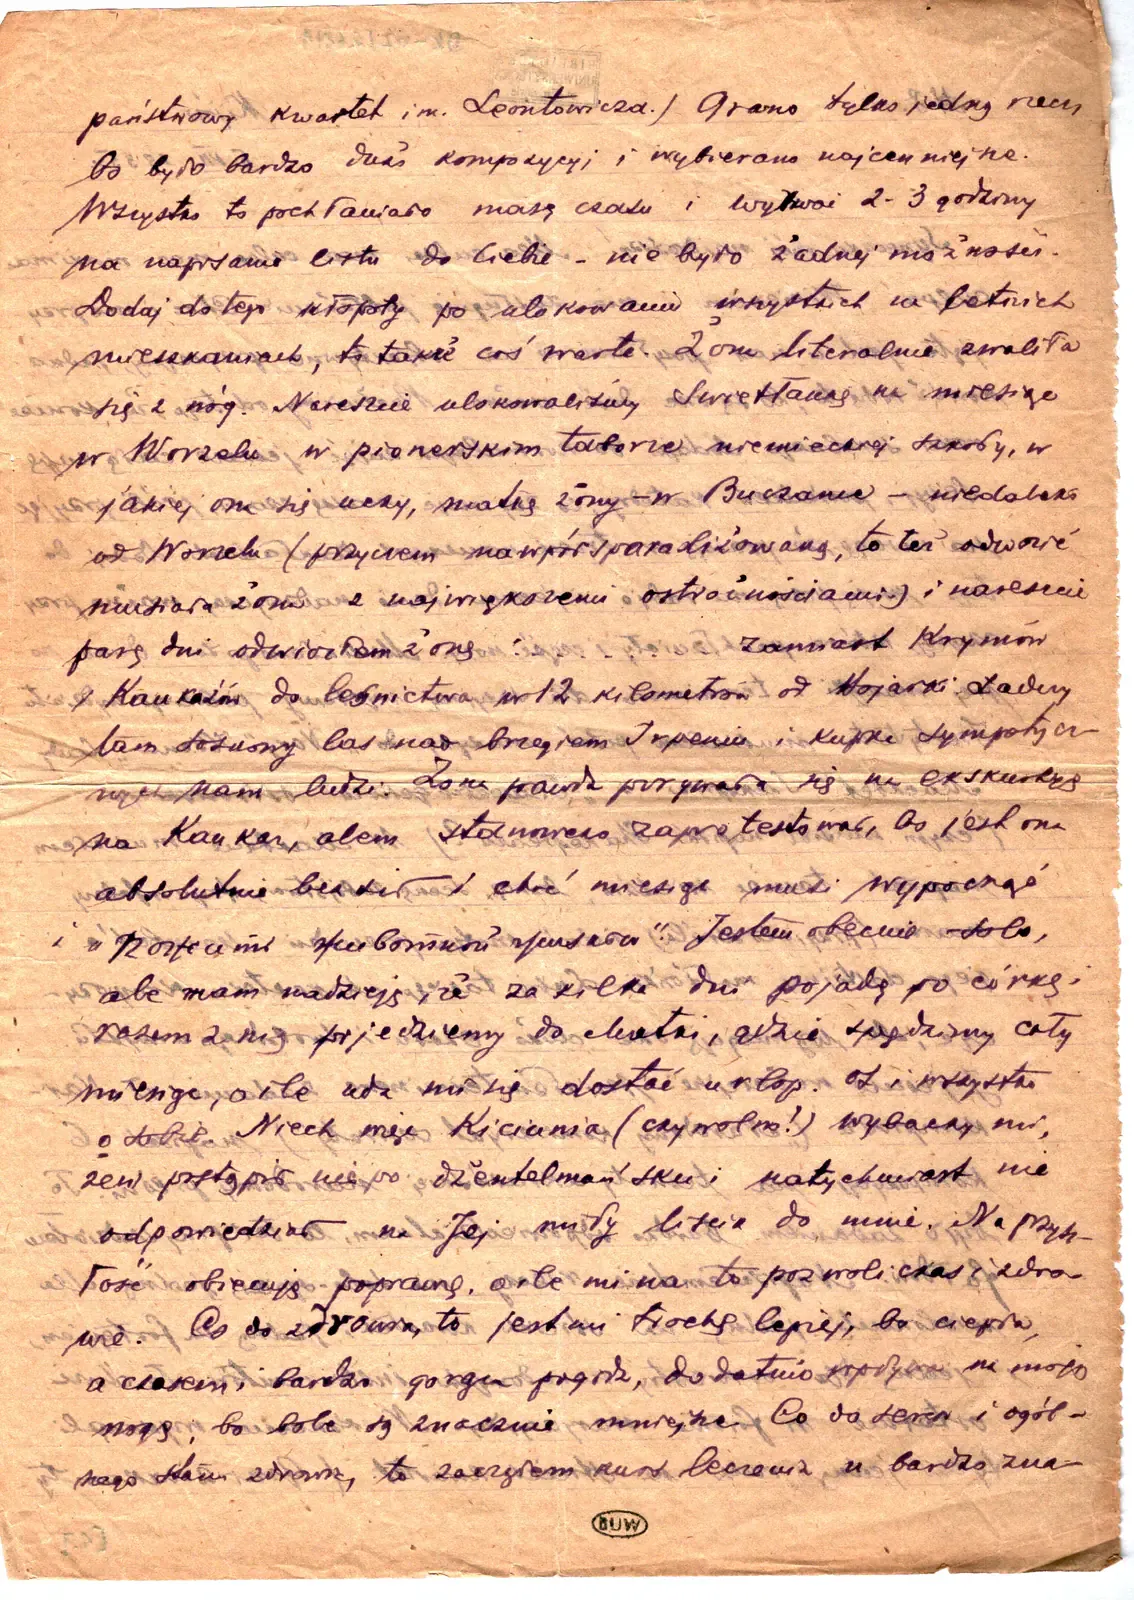 państwowy kwartet im. Leontowicza.) Grano tylko jedną rzecz,
bo było bardzo dużo kompozycyj i wybierano najcenniejsze.
Wszystko to pochłaniało masę czasu i wyrwać 2-3 godziny
na napisanie listu do Ciebie – nie było żadnej możności.
Dodaj do tego kłopoty po ulokowaniu wszystkich na letnich
mieszkaniach, to także coś warte. Żona literalnie zwaliła
się z nóg. Nareszcie ulokowaliśmy Swietłanę na miesiąc
w Worzelu w pionerskim taborze niemieckiej szkoły, w
jakiej ona się uczy, matkę żony – w Buczanie – niedaleko
od Worzelu (przyczem nawpółsparaliżowaną, to też odwozić
musiała żona z największemi ostrożnościami) i nareszcie
parę dni odwiozłem żonę : . . . . . . zamiast Krymów
i Kaukazów do leśnictwa w 12 kilometrów od Bojarki. Ładny
tam sosnowy las nad brzegiem Irpenia i kupka sympatycz-
nych nam ludzi. Żona prawda porywała się na ekskursję
na Kaukaz, alem stanowczo zaprotestował, bo jest ona
absolutnie bez sił i choć miesiąc musi wypocząć
i "
Jestem obecnie solo,
ale mam nadzieję, że za kilka dni pojadę po córkę i
razem z nią pojedziemy do Matki, gdzie spędzimy cały
miesiąc, o ile uda mi się dostać urlop. Ot i wszystko
o sobie. Niech więc Kiciunia (czy wolno!) wybaczy mi,
żem postąpił nie po dżentelmańsku i natychmiast nie
odpowiedział na Jej miły liścik do mnie. Na przysz-
łość obiecuję poprawę, o ile mi na to pozwoli czas i zdro-
wie. Co do zdrowia, to jest mi trochę lepiej, bo ciepła,
a czasem i bardzo gorąca pogoda, dodatnio wpływa na moją
nogę, bo bole są znacznie mniejsze. Co do serca i ogól-
nego stanu zdrowia, to zacząłem kurs leczenia u bardzo zna-
BUW